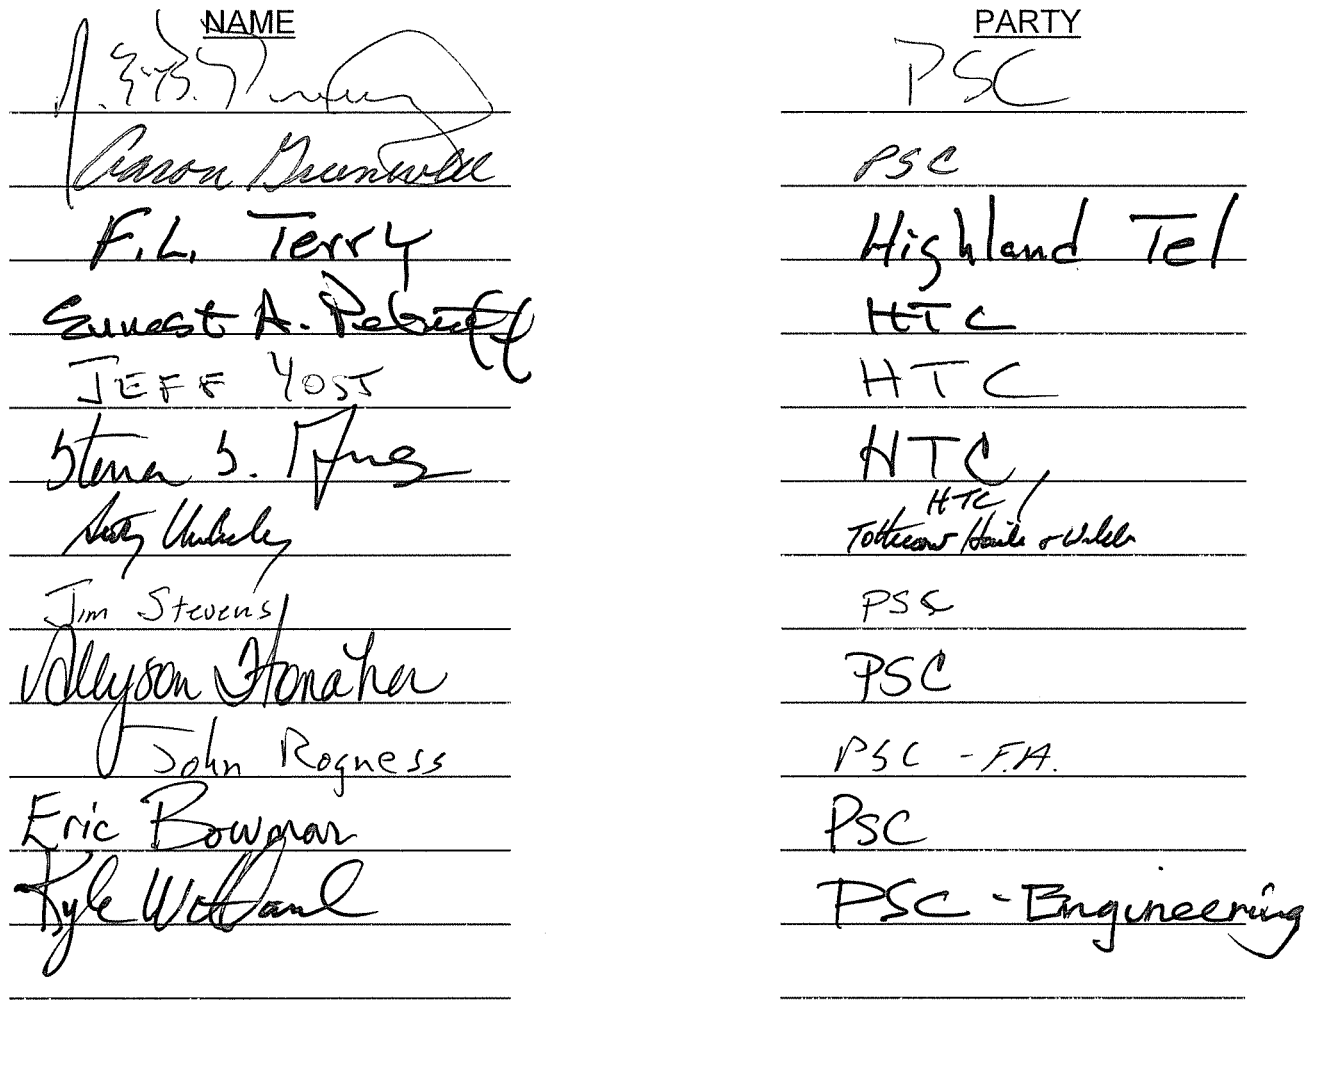 NAME PARTY
PSC
Aaron Greenwell PSC
F.L. Terry Highland Tel
Ernest A. Petroff HTC
JEFF YOST HTC
Steven S. HTC
HTC /
&
Jim Stevens PSC
Allyson Honaker PSC
John Rogness PSC - F.A.
Eric Bowman PSC
Kyle Willard PSC - Engineering